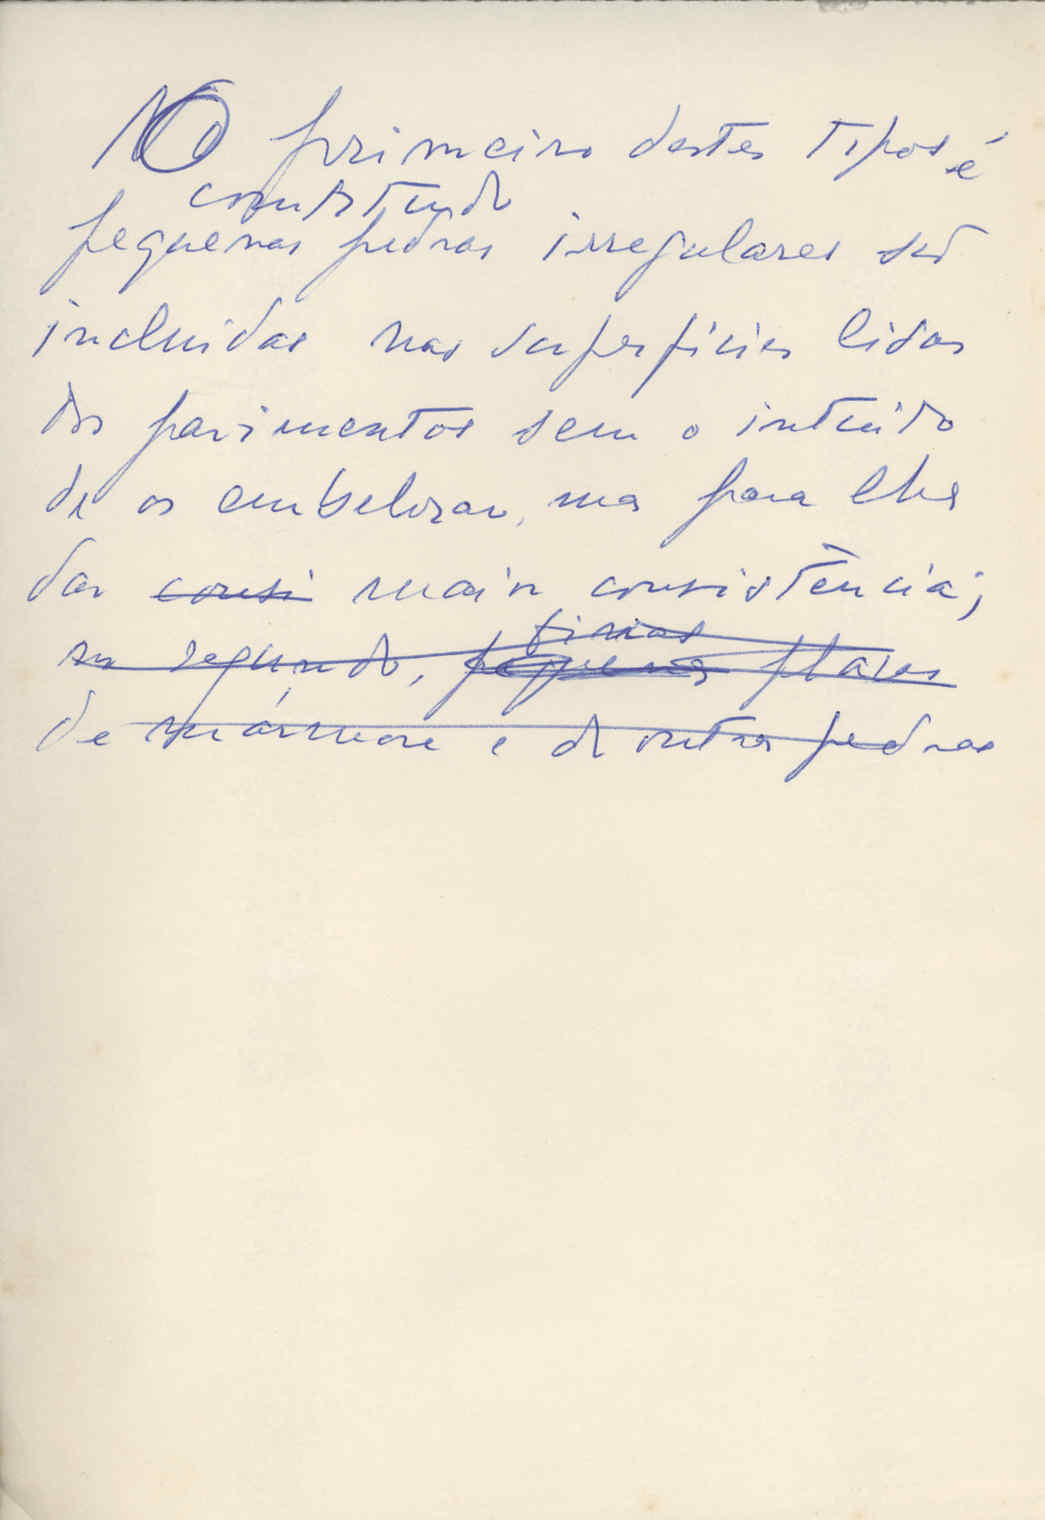 No primeiro destes tipos é
constituído
pequenas pedras irregulares são
incluidas nas superfícies lisas
dos pavimentos sem o intuito
de os embelezar, mas para lhes
dar consi maior consistência;
no segundo, pequenas finas placas
de mármore e de outras pedras